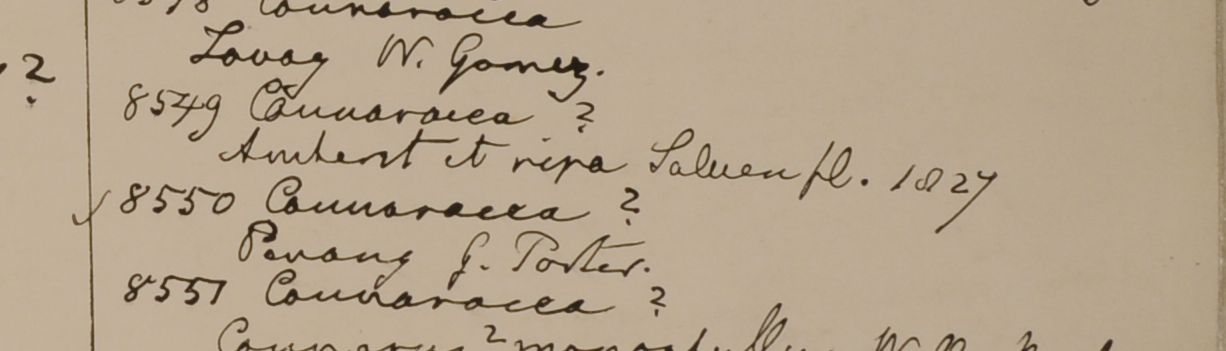 Connaracea
Lavoy W. Gomez.
? 8549 Connaracea ?
Amherst et ripa Saluen fl. 1827
8550 Connaracea ?
Penang G. Porter.
8551 Connaracea ?
Connarus ?